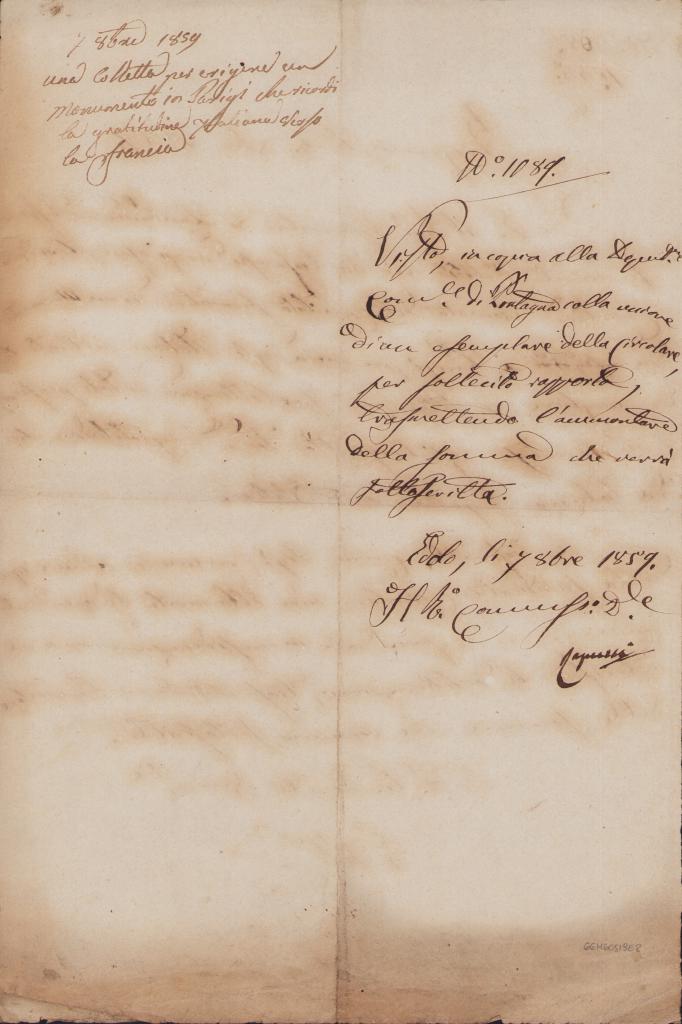 7 8bre 1859
una Colletta per erigere un
monumento in Parigi che ricordi
la gratitudine Italiana verso
la Francia
N.º 1089.
Visto, in copia alla Deput.ne
Com.le di Rontagna colla unione
di un esemplare della Circolare,
per sollecito rapporto,
trasmettendo l'ammontare
della somma che verrà
sottoscritta.
Edolo, li 7 8bre 1859.
Il R.º Commiss.º D.le
GEHEOS19E2